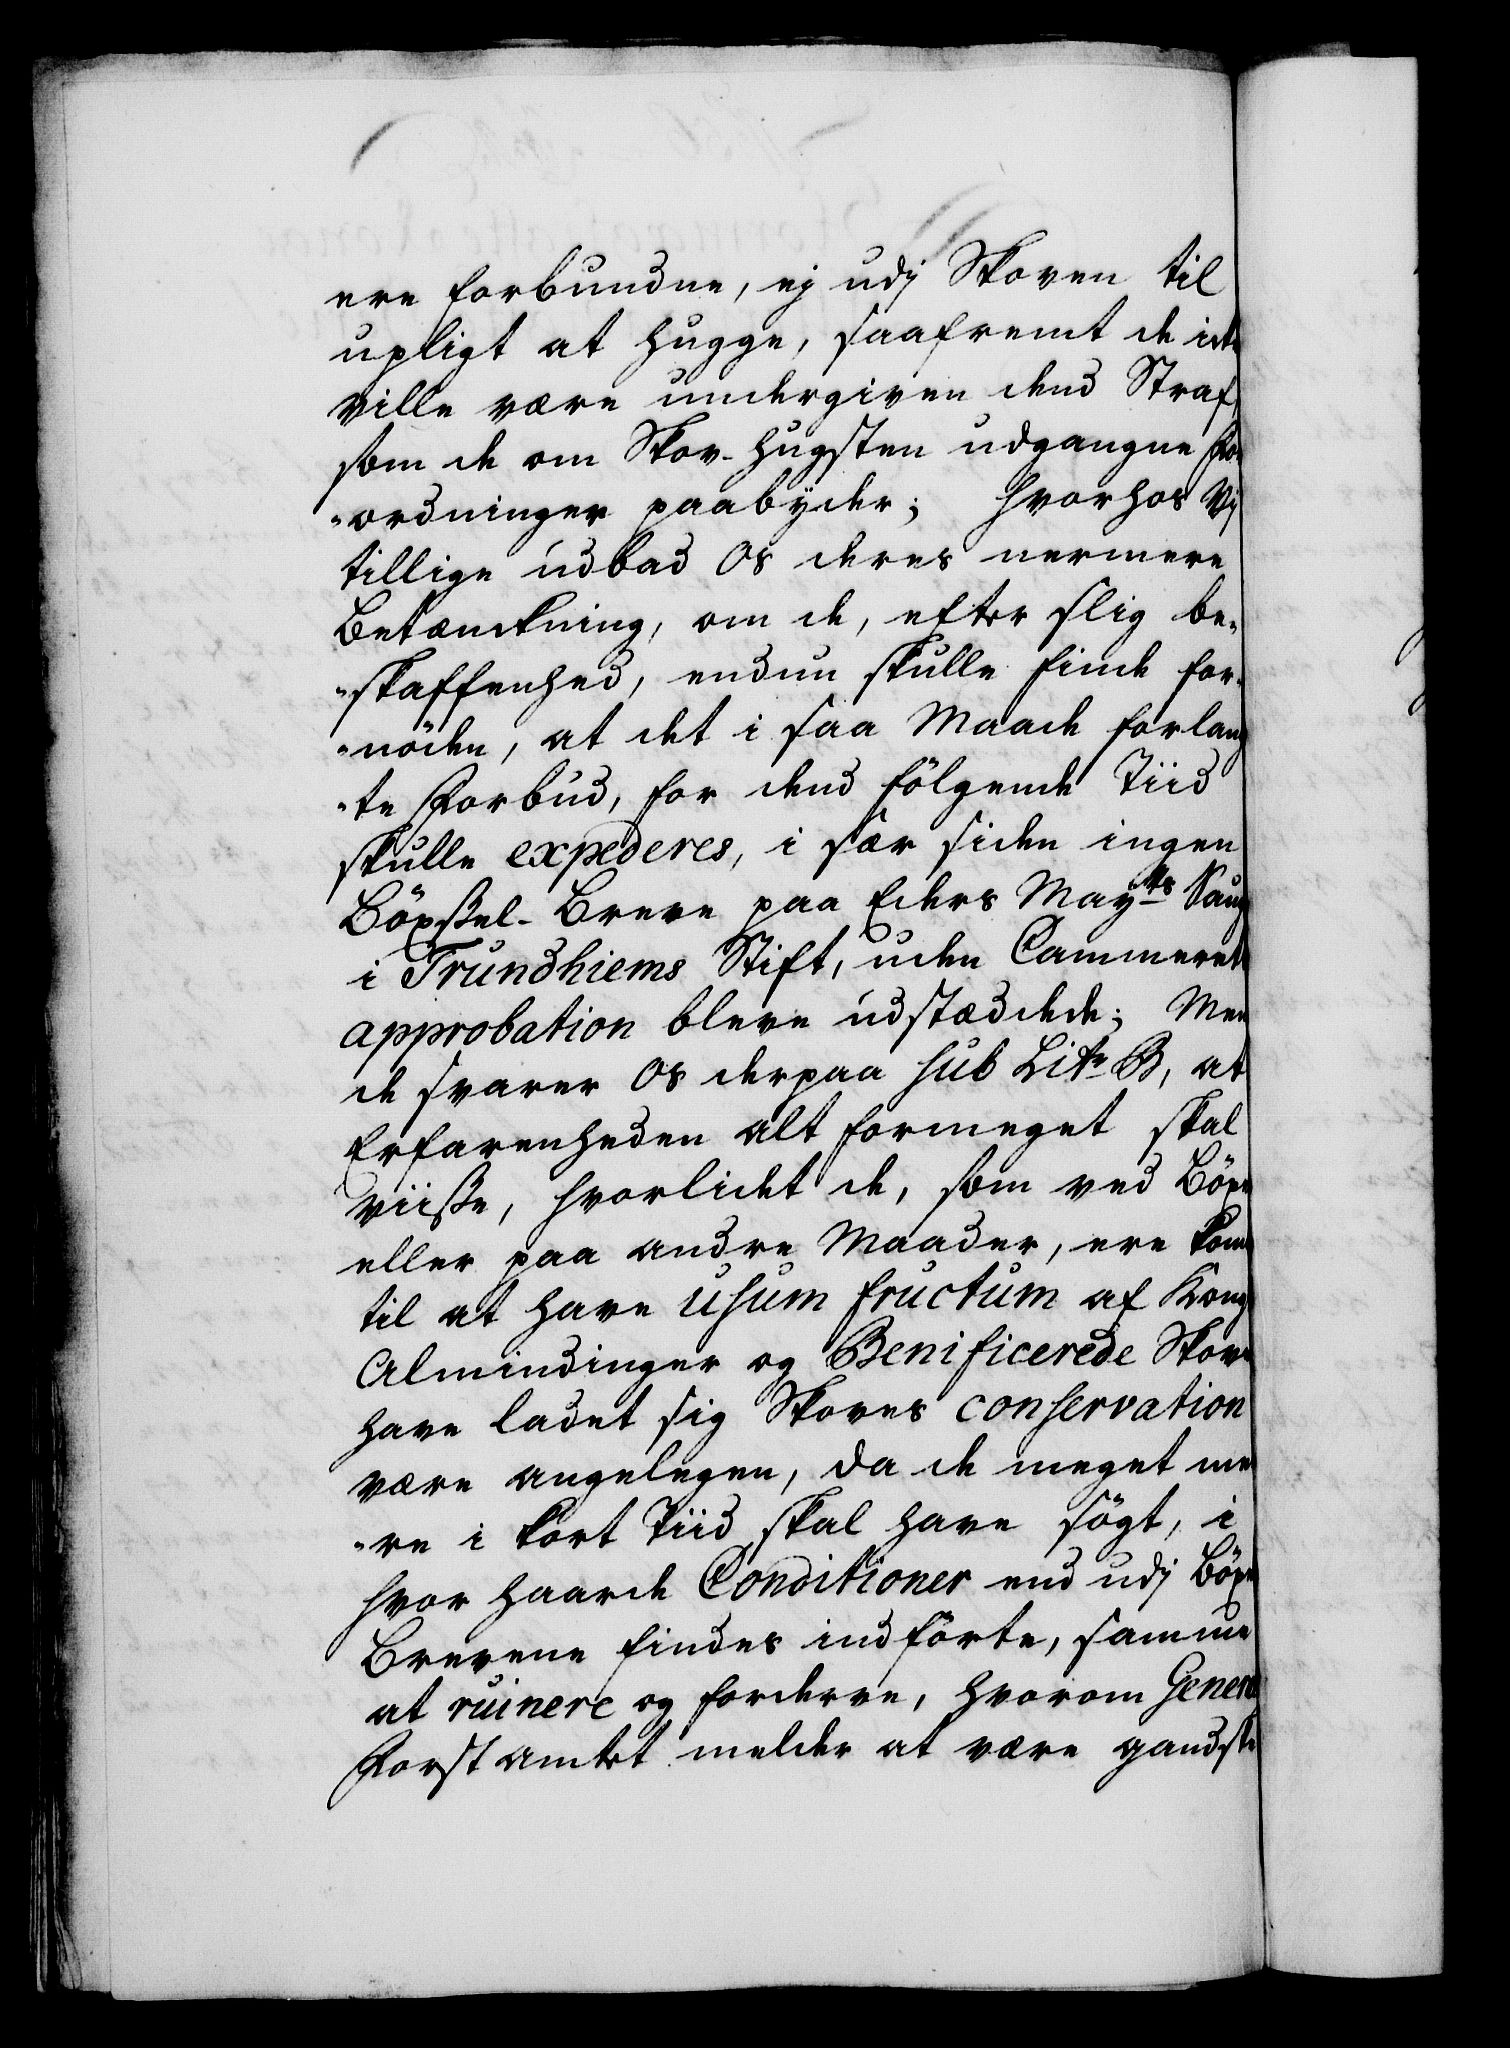 ere forbundne, ej udj Skoven til
upligt at hugge, saafremt de icke
ville være undergiven dend Straf,
som de om Skov-hugsten udgangne For
-ordninger paabÿder; hvorhos Vj
tillige udbad Os deres nermere
Betænckning, om de, efter slig be-
-skaffenhed, endnu skulle finde for-
-nöden, at det i saa Maade forlang
-te Forbud, for dend fölgende Tiid
skulle expederes, i sær siden ingen
Böxsel-Breve paa Eders Mayts Saug
i Trundhiems Stift, uden Cammerets
approbation bleve udstædede; Men
de svarer Os derpaa sub Litr B, at
Erfarenheden alt formeget skal
viisse, hvorlidet de, som ved Böxel
eller paa andre Maader, ere kom
til at have usum fructum af Kong
Almindinger og Benificerede Skove
have ladet sig Skoves conservation
være angelegen, da de meget me
-re i kort Tiid skal have sögt, i
hvor haarde Conditioner end udj Böxel
Brevene findes indförte, samme
at ruinere og forderve, hvorom General
Forst Amtet melder at være gandske